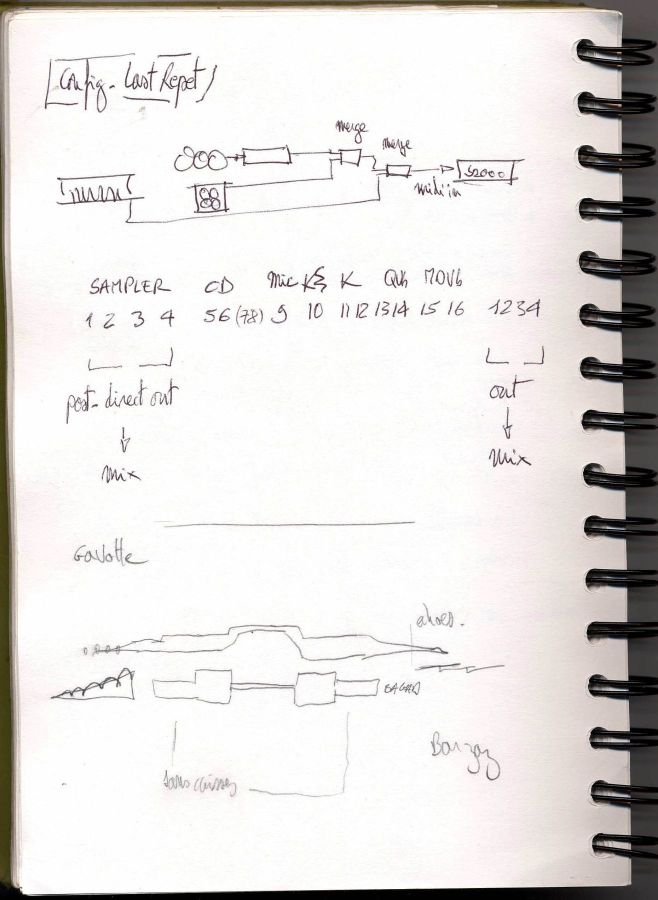 Config - Last Repet
merge
merge
S2000
midi in
SAMPLER CD Mic K K QVb MOVb
1 2 3 4 56(78) 9 10 11 12 13 14 15 16 1234
post-direct out
out
mix
mix
Gavotte
BAGAD
Barzaz
sans caisses